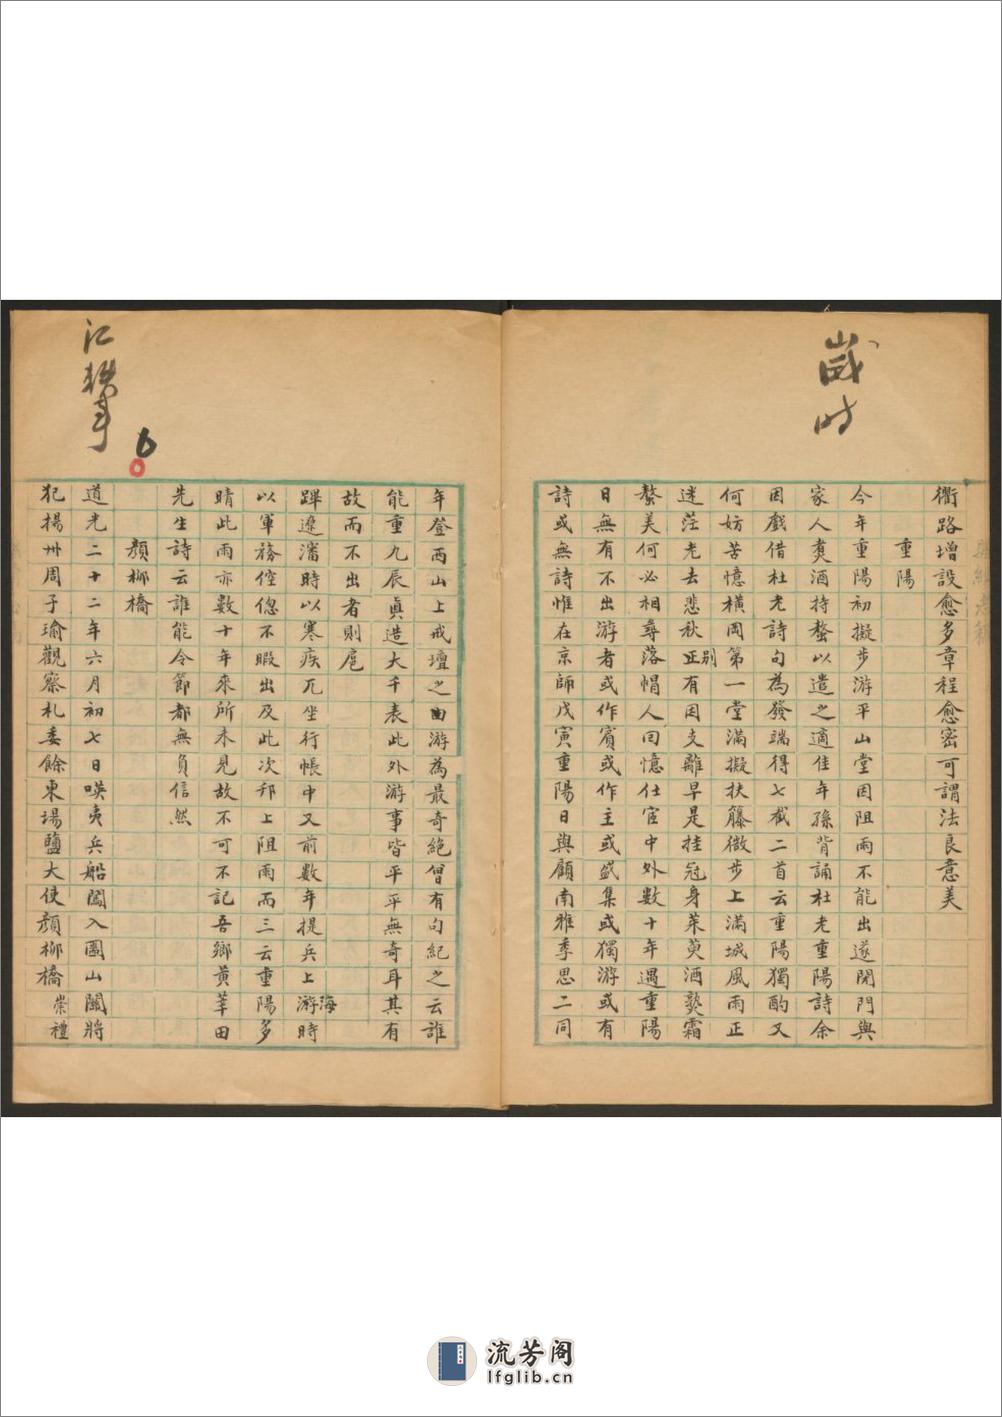 歲時
衢路增設愈多章程愈密可謂法良意美
重陽
今年重陽初擬步游平山堂因阻雨不能出遂閉門與
家人煑酒持螯以遣之適佳年孫背誦杜老重陽詩余
因戲借杜老詩句為發端得七截二首云重陽獨酌又
何妨苦憶橫岡第一堂滿擬扶籐微步上滿城風雨正
迷茫老去悲秋正別有因支離早是挂冠身茱萸酒熟霜
螯美何必相尋落帽人回憶仕宦中外數十年遇重陽
日無有不出游者或作賓或作主或盛集或獨游或有
詩或無詩惟在京師戊寅重陽日與顧南雅季思二同
江耕事
年登西山上戒壇之由游為最奇絶曾有句紀之云誰
能重九辰眞造大千表此外游事皆平平無奇耳其有
故而不出者則扈
蹕遼瀋時以寒疾兀坐行帳中又前數年提兵上游海時
以軍務倥偬不暇出及此次邗上阻雨而三云重陽多
晴此雨亦數十年來所未見故不可不記吾鄉黄莘田
先生詩云誰能令節都無負信然
顏柳橋
道光二十二年六月初七日㗲夷兵船闖入圌山關將
犯揚州周子瑜觀察札委餘東場鹽大使顏柳橋崇禮
流芳阁
lfglib.cn